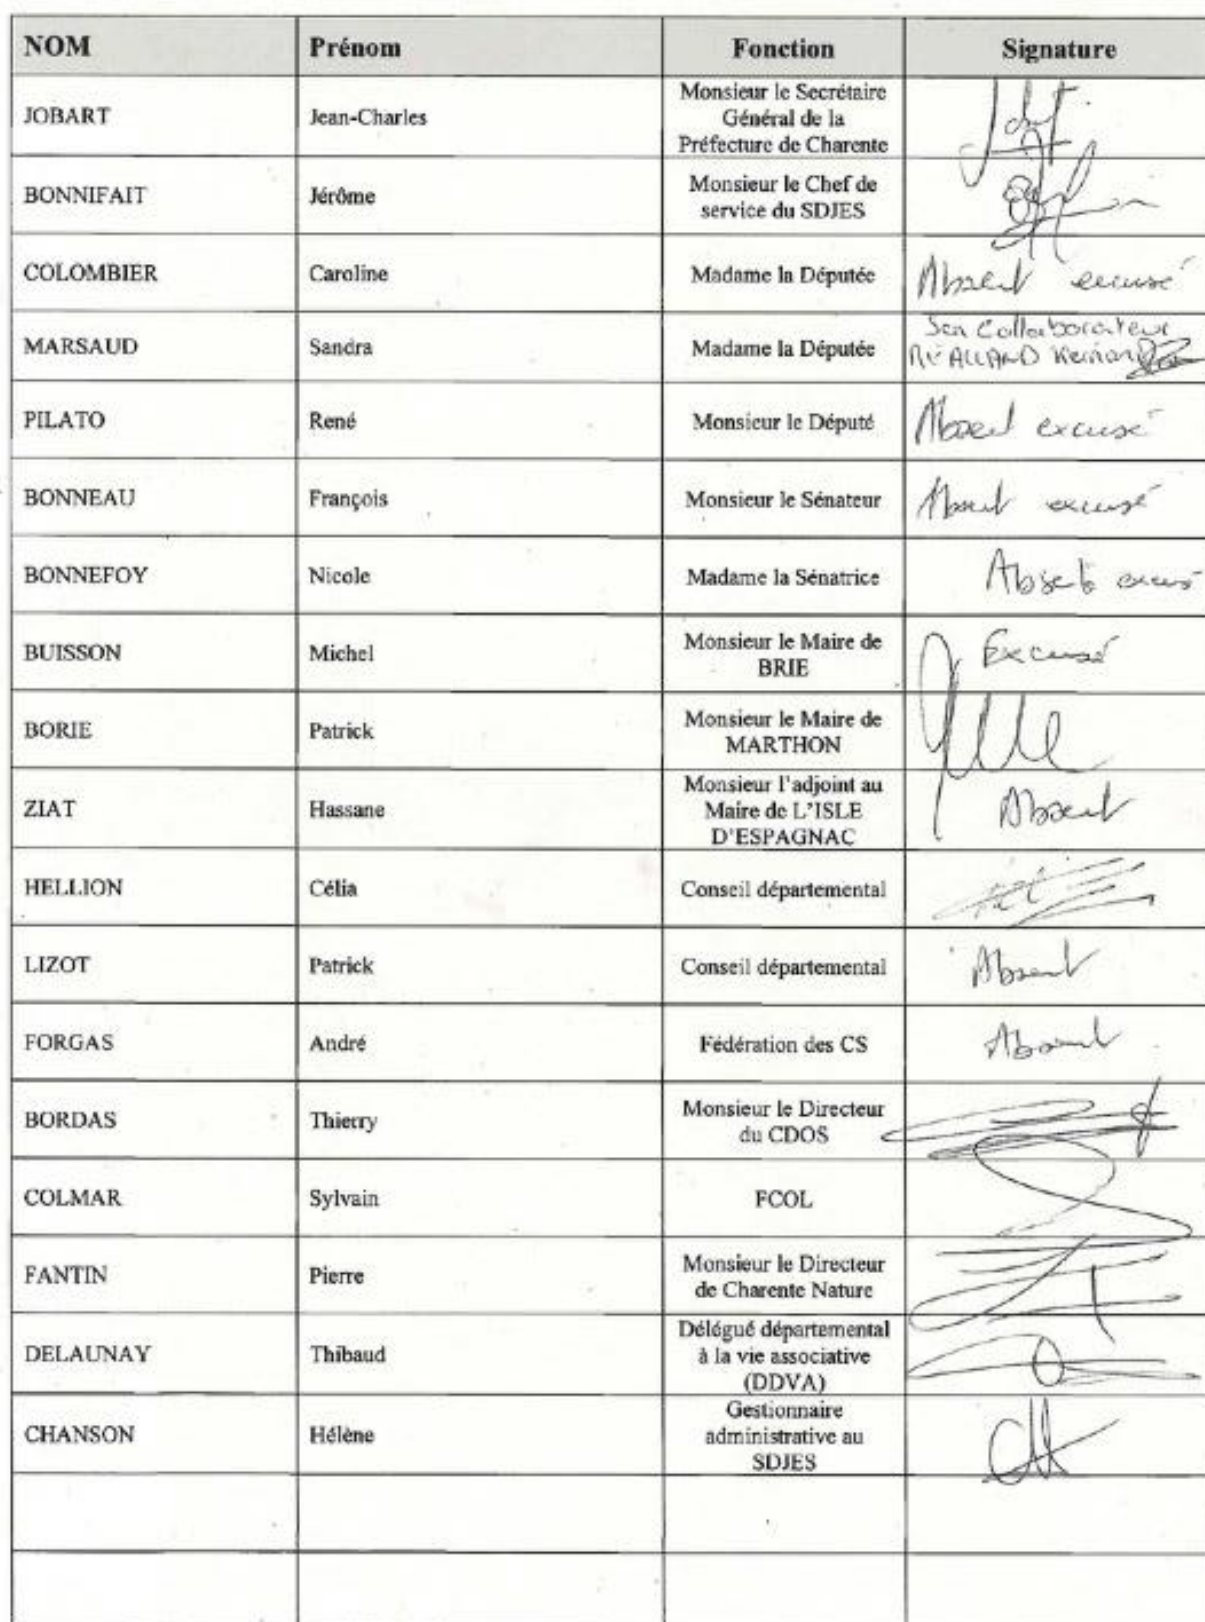 NOM Prénom Fonction Signature
JOBART Jean-Charles Monsieur le Secrétaire
Général de la
Préfecture de Charente
BONNIFAIT Jérôme Monsieur le Chef de
service du SDJES
COLOMBIER Caroline Madame la Députée Absent excusé
MARSAUD Sandra Madame la Députée Son Collaborateur
PILATO René Monsieur le Député Absent excusé
BONNEAU François Monsieur le Sénateur Absent excusé
BONNEFOY Nicole Madame la Sénatrice Absente excusé
BUISSON Michel Monsieur le Maire de
BRIE Excusé
BORIE Patrick Monsieur le Maire de
MARTHON
ZIAT Hassane Monsieur l'adjoint au
Maire de L'ISLE
D'ESPAGNAC Absent
HELLION Célia Conseil départemental
LIZOT Patrick Conseil départemental Absent
FORGAS André Fédération des CS Absent
BORDAS Thierry Monsieur le Directeur
du CDOS
COLMAR Sylvain FCOL
FANTIN Pierre Monsieur le Directeur
de Charente Nature
DELAUNAY Thibaud Délégué départemental
à la vie associative
(DDVA)
CHANSON Hélène Gestionnaire
administrative au
SDJES